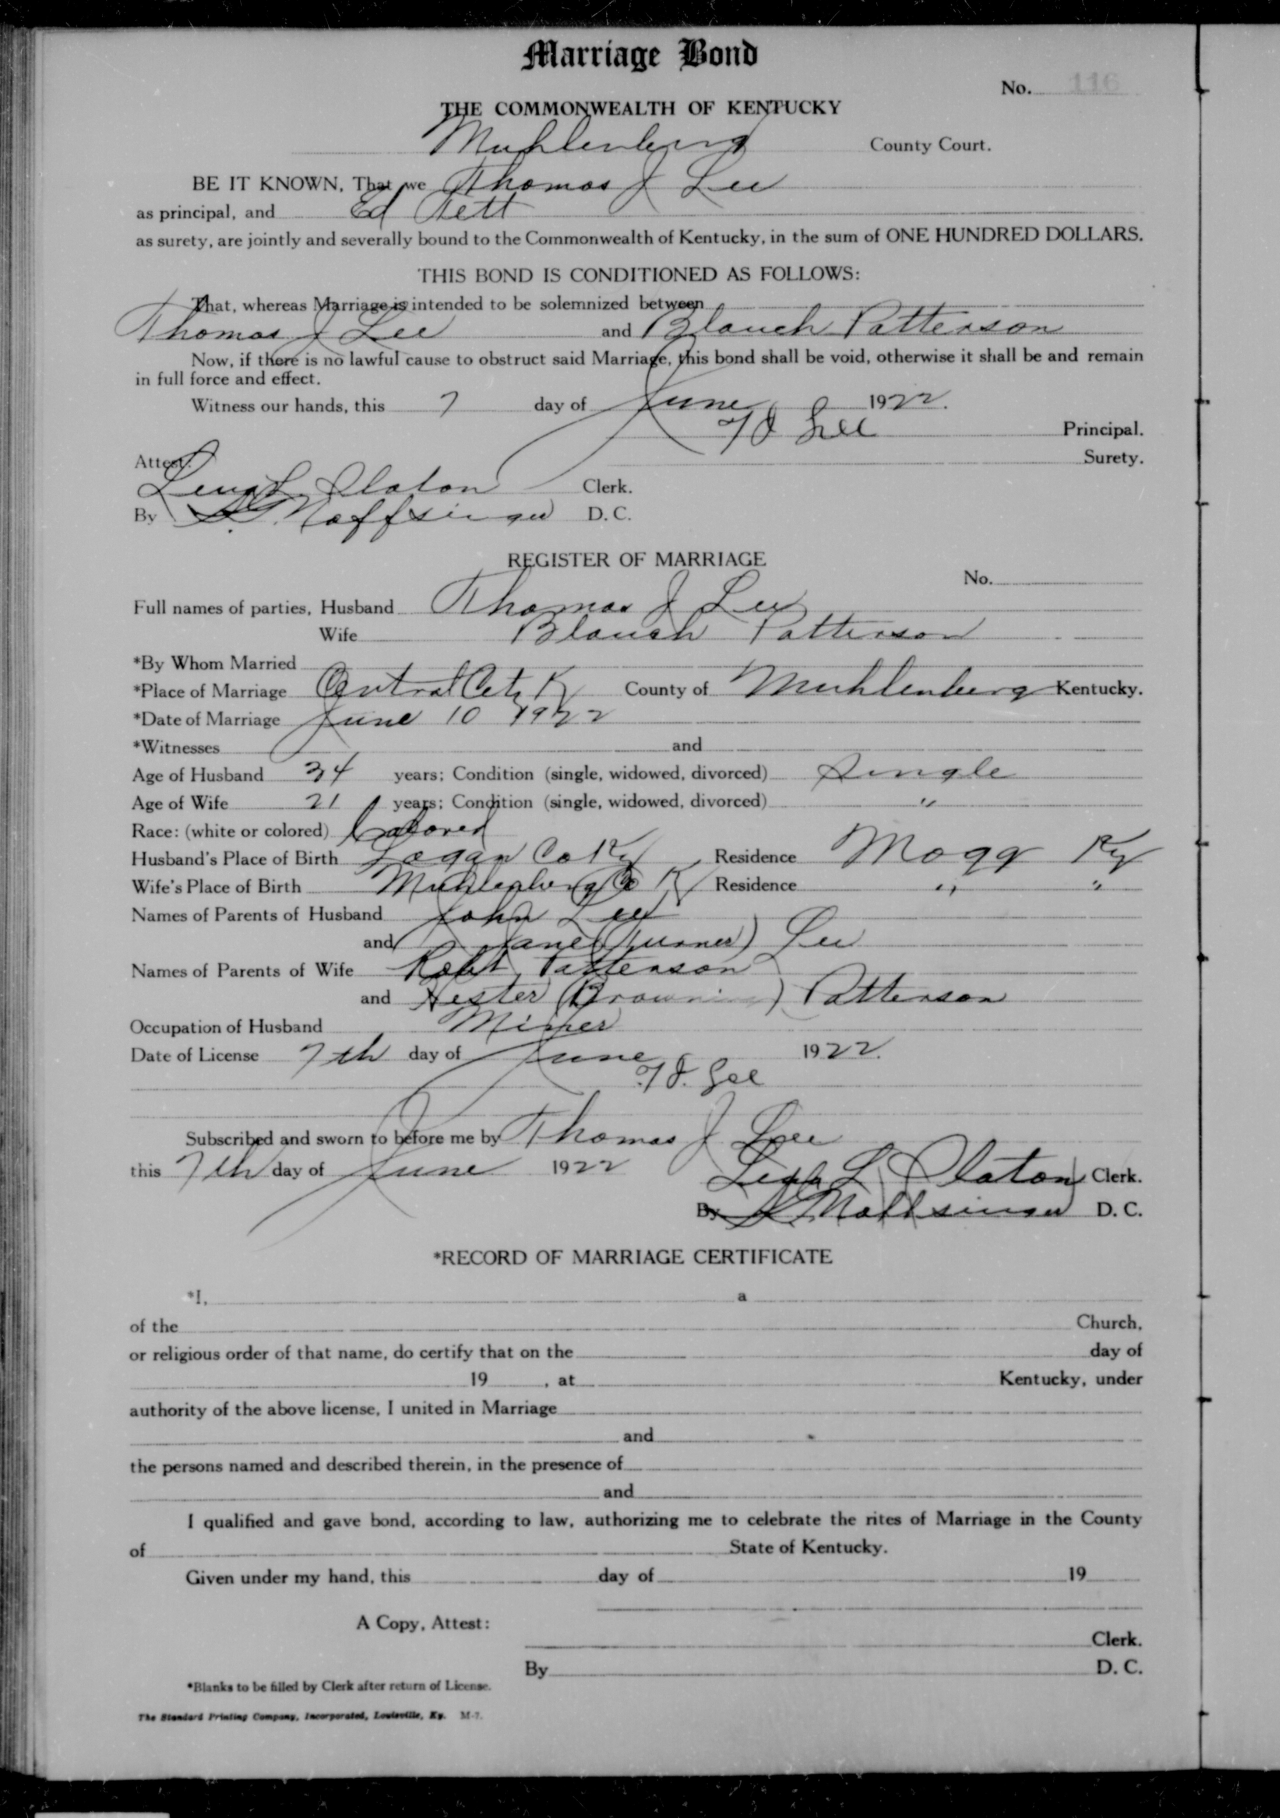 Marriage Bond
No. 116
THE COMMONWEALTH OF KENTUCKY
Muhlenberg County Court.
BE IT KNOWN, That we Thomas J Lee
as principal, and Ed Tett
as surety, are jointly and severally bound to the Commonwealth of Kentucky, in the sum of ONE HUNDRED DOLLARS.
THIS BOND IS CONDITIONED AS FOLLOWS:
That, whereas Marriage is intended to be solemnized between
Thomas J Lee and Blanch Patterson
Now, if there is no lawful cause to obstruct said Marriage, this bond shall be void, otherwise it shall be and remain
in full force and effect.
Witness our hands, this 7 day of June 1922.
T J Lee Principal.
Surety.
Attest:
Lena L. Slaton Clerk.
By Noffsinger D. C.
REGISTER OF MARRIAGE
No.
Full names of parties, Husband Thomas J Lee
Wife Blanch Patterson
*By Whom Married
*Place of Marriage Central City Ky County of Muhlenberg Kentucky.
*Date of Marriage June 10 1922
*Witnesses and
Age of Husband 34 years; Condition (single, widowed, divorced) Single
Age of Wife 21 years; Condition (single, widowed, divorced) "
Race: (white or colored) Colored
Husband's Place of Birth Logan Co Ky Residence Mogg Ky
Wife's Place of Birth Muhlenberg Co Ky Residence " "
Names of Parents of Husband John Lee
and Jane (Turner) Lee
Names of Parents of Wife Robt Patterson
and Hester (Browning) Patterson
Occupation of Husband Miner
Date of License 7th day of June 1922.
T J. Lee
Subscribed and sworn to before me by Thomas J Lee
this 7th day of June 1922
Lena L Slaton Clerk.
By Noffsinger D. C.
*RECORD OF MARRIAGE CERTIFICATE
*I, a
of the Church,
or religious order of that name, do certify that on the day of
19 , at Kentucky, under
authority of the above license, I united in Marriage
and
the persons named and described therein, in the presence of
and
I qualified and gave bond, according to law, authorizing me to celebrate the rites of Marriage in the County
of State of Kentucky.
Given under my hand, this day of 19
A Copy, Attest:
Clerk.
By D. C.
*Blanks to be filled by Clerk after return of License.
The Standard Printing Company, Incorporated, Louisville, Ky. M-7.